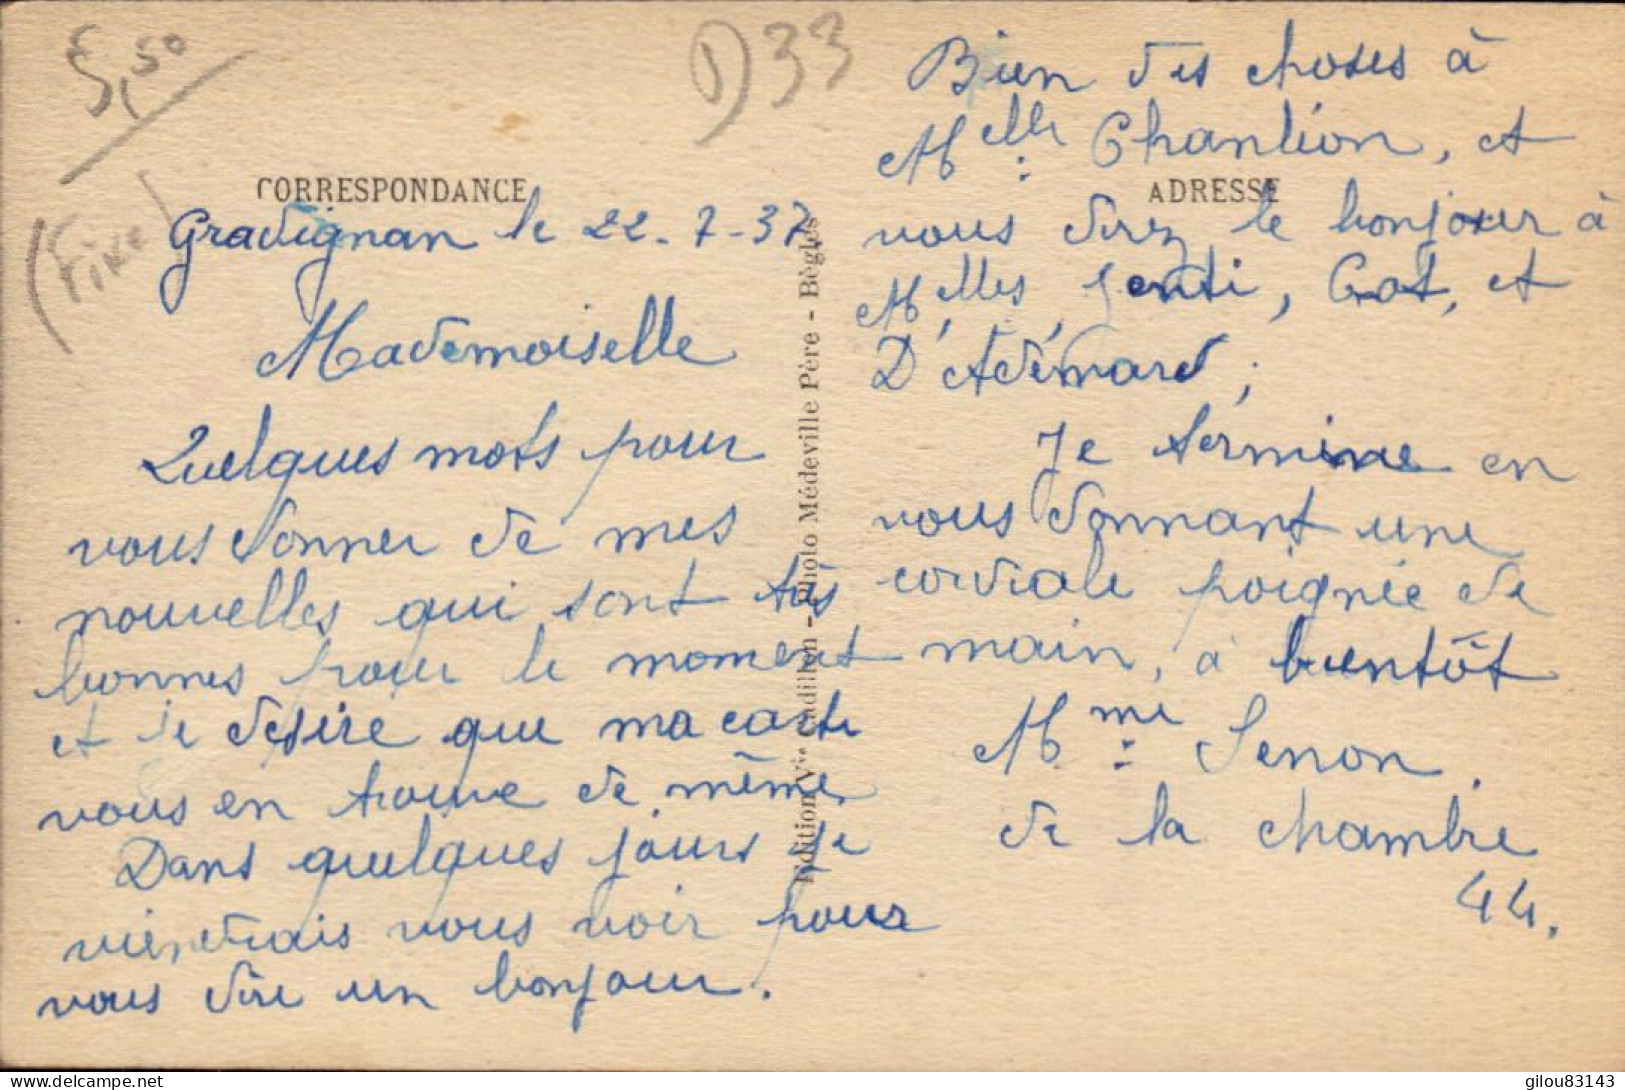 5,50
(Fixe)
D33
CORRESPONDANCE
Gradignan le 22-7-37,
Mademoiselle
Quelques mots pour
vous donner de mes
nouvelles qui sont très
bonnes pour le moment
et je désire que ma carte
vous en trouve de même
Dans quelques jours je
viendrais vous voir pour
vous dire un bonjour.
Edition Vve Cadillon - Photo Médeville Père - Bègles
Bien des choses à
Melle Chanlion, et
ADRESSE
vous direz le bonjour à
Melles Genti, Cot, et
D'Adémard;
Je termine en
vous donnant une
cordiale poignée de
main, à bientôt
Mme Senon.
de la chambre
44.
delcampe.net
gilou83143